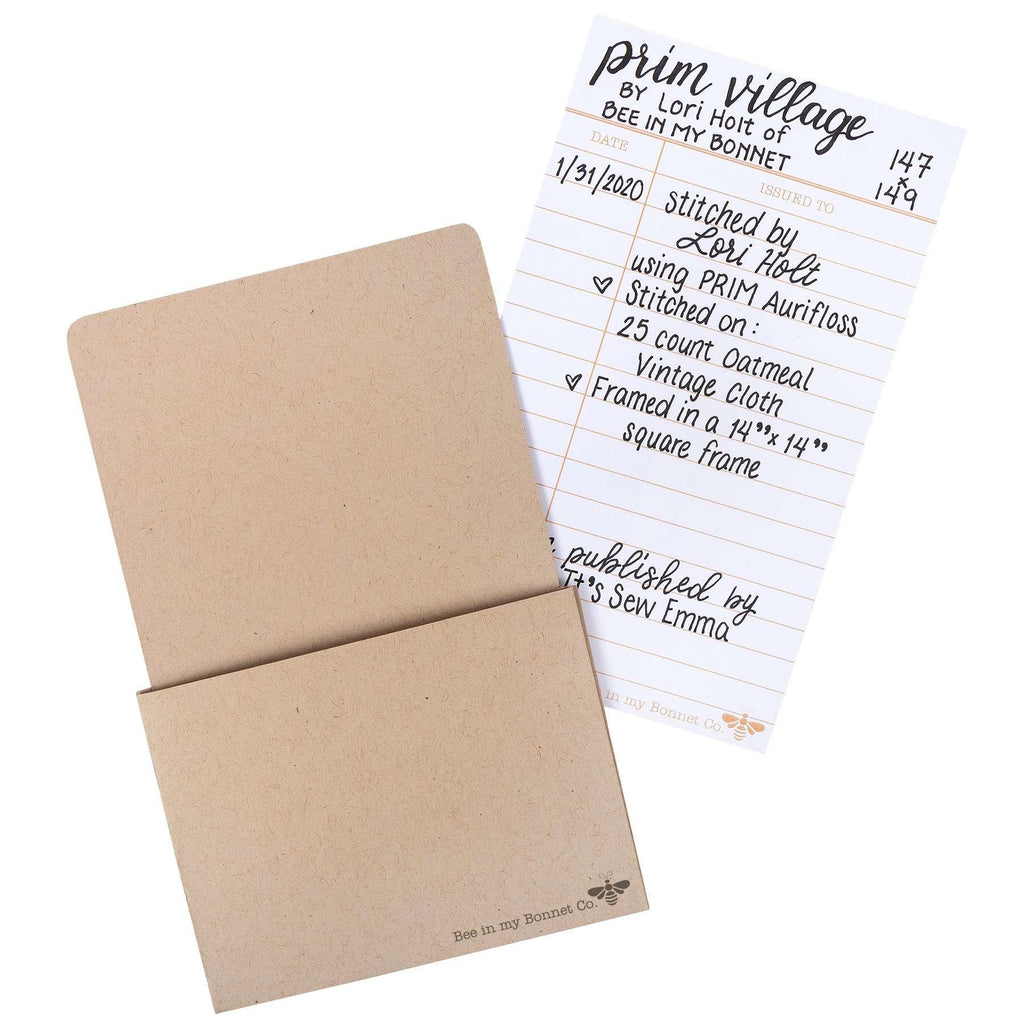 prim village
BY Lori Holt of
BEE IN MY BONNET
147
x
149
DATE
ISSUED TO
1/31/2020
stitched by
Lori Holt
using PRIM Aurifloss
♡ Stitched on:
25 count Oatmeal
Vintage Cloth
♡ Framed in a 14"x 14"
square frame
published by
It's Sew Emma
in my Bonnet Co.
Bee in my Bonnet Co.